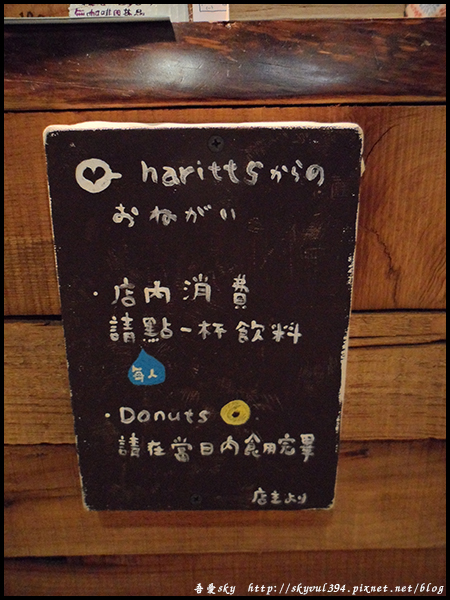 harittsからの
おねがい
・店內消費
請點一杯飲料
每人
・Donuts
請在當日內食用完畢
店主より
吾愛sky http://skyvul394.pixnet.net/blog